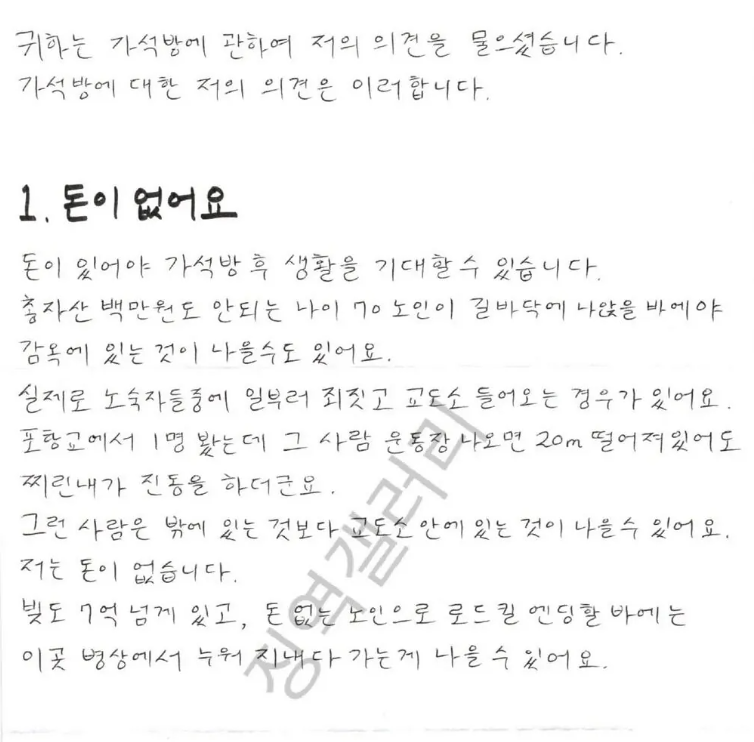 귀하는 가석방에 관하여 저의 의견을 물으셨습니다.
가석방에 대한 저의 의견은 이러합니다.
1. 돈이 없어요
돈이 있어야 가석방 후 생활을 기대할 수 있습니다.
총자산 백만원도 안되는 나이 70 노인이 길바닥에 나앉을 바에야
감옥에 있는 것이 나을수도 있어요.
실제로 노숙자들중에 일부러 죄짓고 교도소 들어오는 경우가 있어요.
포항교에서 1명 봤는데 그 사람 운동장 나오면 20m 떨어져있어도
찌린내가 진동을 하더군요.
그런 사람은 밖에 있는 것보다 교도소 안에 있는 것이 나을수 있어요.
저는 돈이 없습니다.
빚도 7억 넘게 있고, 돈 없는 노인으로 로드킬 엔딩할 바에는
이곳 병상에서 누워 지내다 가는게 나을 수 있어요.
징역갤러리